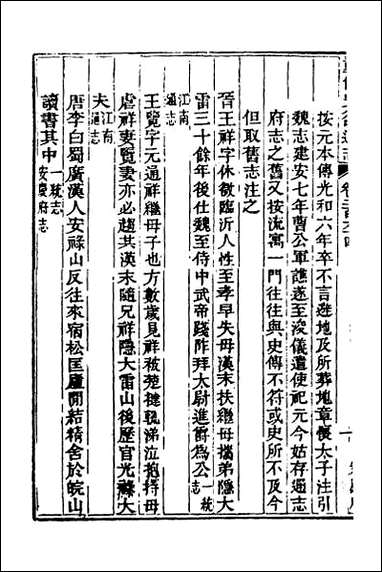 按元本傳光和六年卒不言避地及所葬地章懷太子注引
魏志建安七年曹公軍譙遂至浚儀遣使祀元今姑存通志
府志之舊又按流寓一門往往與史傳不符或史所不及今
但取舊志注之
晉王祥字休徵臨沂人性至孝早失母漢末扶繼母攜弟隱大
雷三十餘年後仕魏至侍中武帝踐阼拜太尉進爵為公一統志
江南通志
王覽字元通祥繼母子也方數歲見祥被楚撻輒涕泣抱持母
虐祥妻覽妻亦必趨共漢末隨兄祥隱大雷山後歷官光祿大
夫江南通志
唐李白蜀廣漢人安祿山反往來宿松匡廬間結精舍於皖山
讀書其中一統志 安慶府志